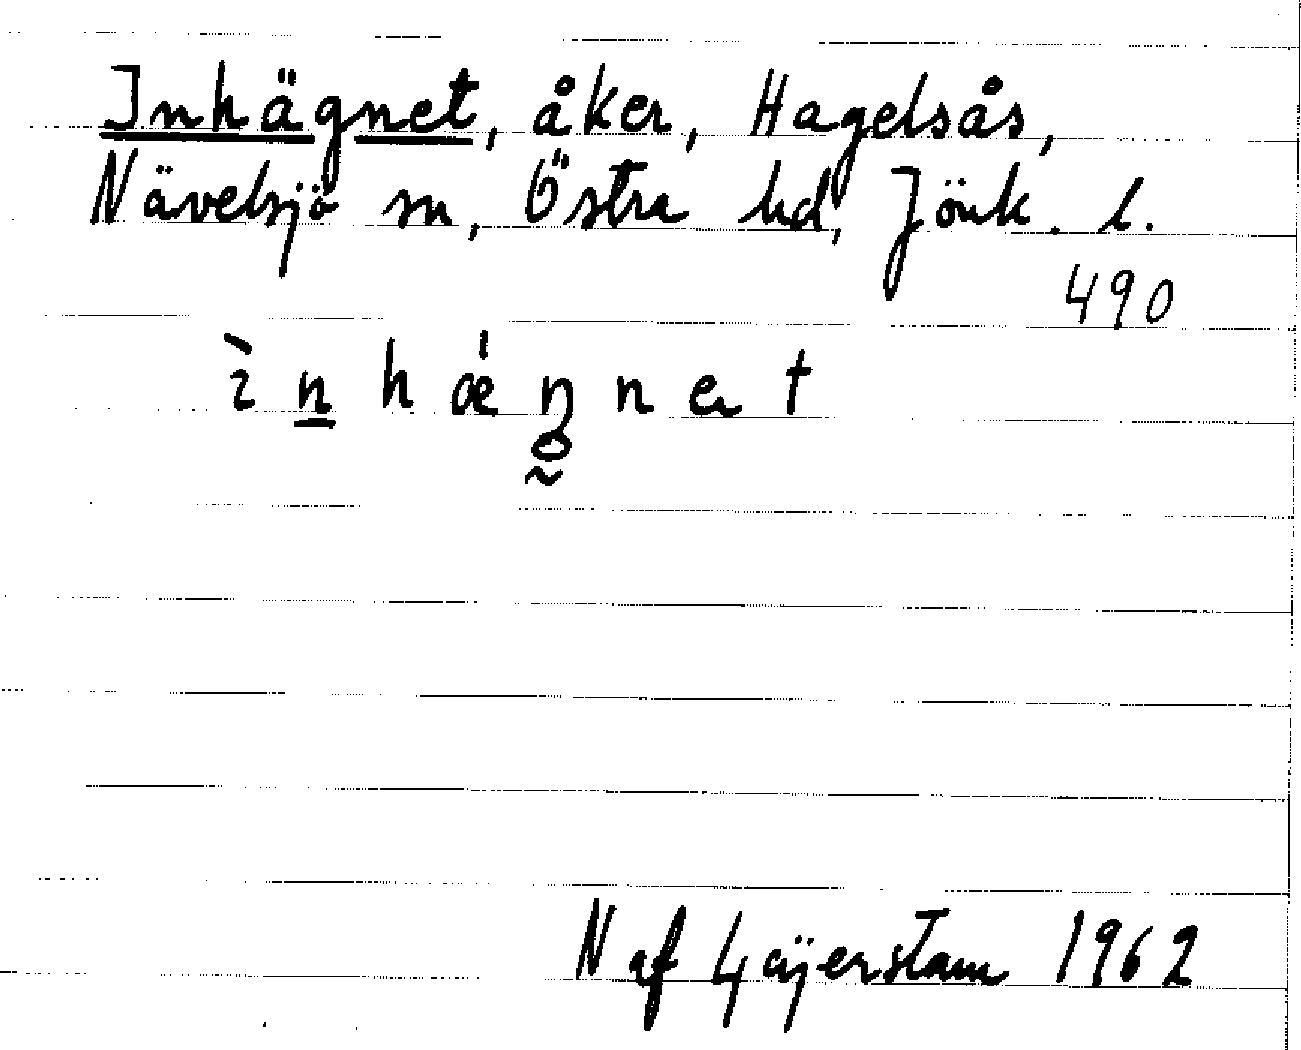 Inhägnet, åker, Hagelsås,
Nävelsjö sn, Östra hd, Jönk. l.
490
ìn̲hǽŋnet
N af Gäijerstam 1962